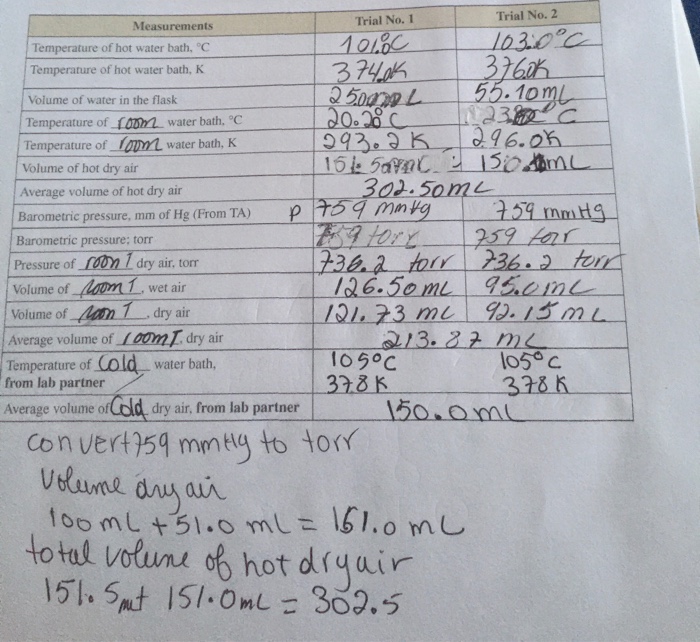 Measurements Trial No. 1 Trial No. 2
Temperature of hot water bath, °C 101.0°C 103.0°C
Temperature of hot water bath, K 374.0K 376.0K
Volume of water in the flask 25 L 55.10mL
Temperature of room water bath, °C 20.20°C °C
Temperature of room water bath, K 293.2K 296.0K
Volume of hot dry air mL
Average volume of hot dry air 302.50mL
Barometric pressure, mm of Hg (From TA) P 759 mmHg 759 mmHg
Barometric pressure; torr 759 torr 759 torr
Pressure of room T dry air, torr 736.2 torr 736.2 torr
Volume of Room T, wet air 126.50mL 95.0mL
Volume of Room T, dry air 121.73 mL 92.15mL
Average volume of roomT, dry air 213.87 mL
Temperature of Cold water bath, 105°C 105°C
from lab partner 378K 378K
Average volume of Cold dry air, from lab partner 150.0ml
convert 759 mmHg to torr
Volume dry air
100mL + 51.0 mL = 151.0mL
total volume of hot dry air
151.5 + 151.0mL = 302.5